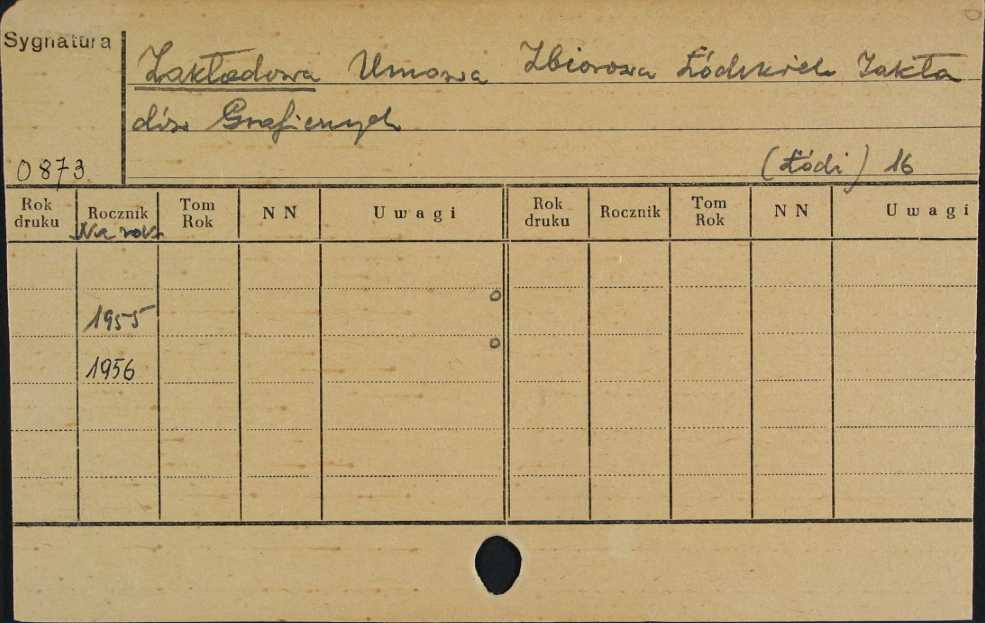 Sygnatura
Zakładowa Umowa Zbiorowa Łódzkich Zakła
dów Graficznych
0873
(Łódź) 16
Rok druku Rocznik Tom Rok NN Uwagi Rok druku Rocznik Tom Rok NN Uwagi
Na rok
1955
1956